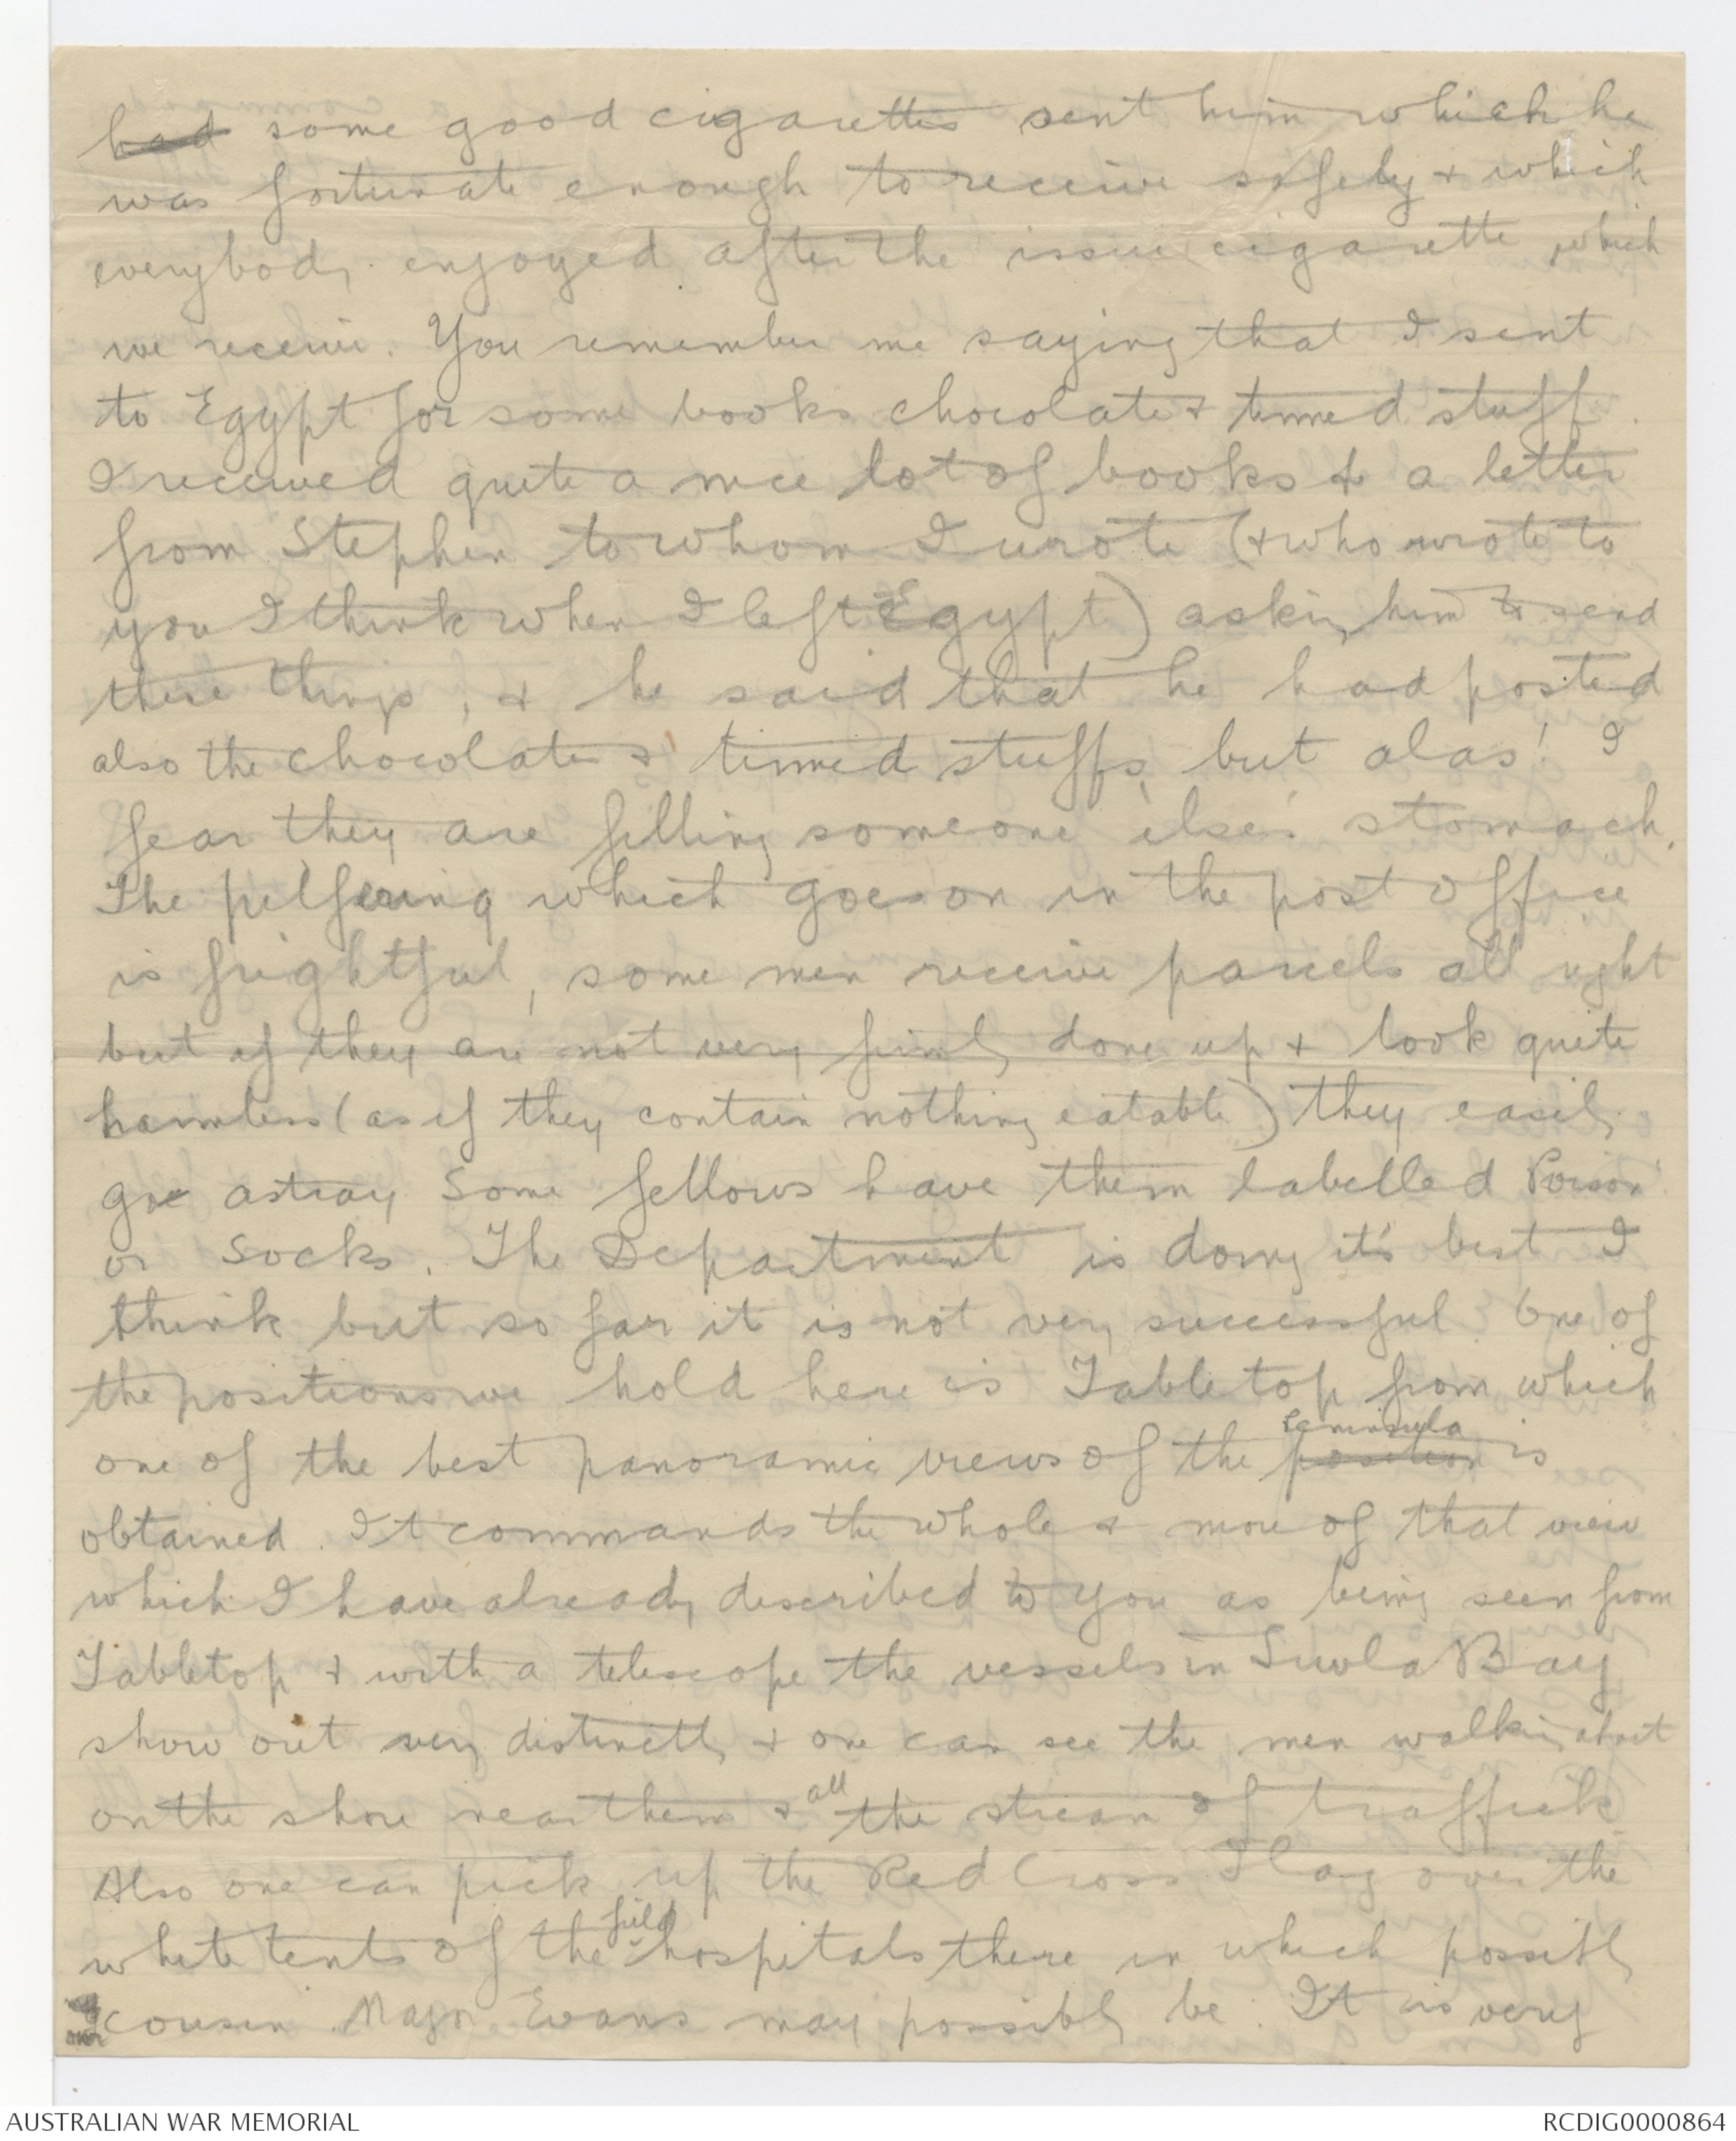 had some good cigarettes sent him which he
was fortunate enough to receive safely & which
everybody enjoyed after the issue cigarette which
we receive. You remember me saying that I sent
to Egypt for some books chocolate & tinned stuff.
I received quite a nice lot of books & a letter
from Stephen to whom I wrote (& who wrote to
you I think when I left Egypt) asking him to send
these things, & he said that he had posted
also the chocolate & tinned stuffs, but alas! I
fear they are filling someone else's stomach.
The pilfering which goes on in the post office
is frightful, some men receive parcels all right
but if they are not very firmly done up & look quite
harmless (as if they contain nothing eatable) they easily
go astray Some fellows have them labelled Poison
or Socks. The Department is doing it's best I
think but so far it is not very successful. One of
the positions we hold here is Tabletop from which
one of the best panoramic views of the position peninsula is
obtained. It commands the whole & more of that view
which I have already described to you as being seen from
Tabletop & with a telescope the vessels in Suvla Bay
show out very distinctly & one can see the men walking about
on the shore near them & all the stream of traffick
Also one can pick up the Red Cross Flag over the
white tents of the field hospitals there in which possibly
cousin Major Evans may possibly be. It is very
AUSTRALIAN WAR MEMORIAL
RCDIG0000864